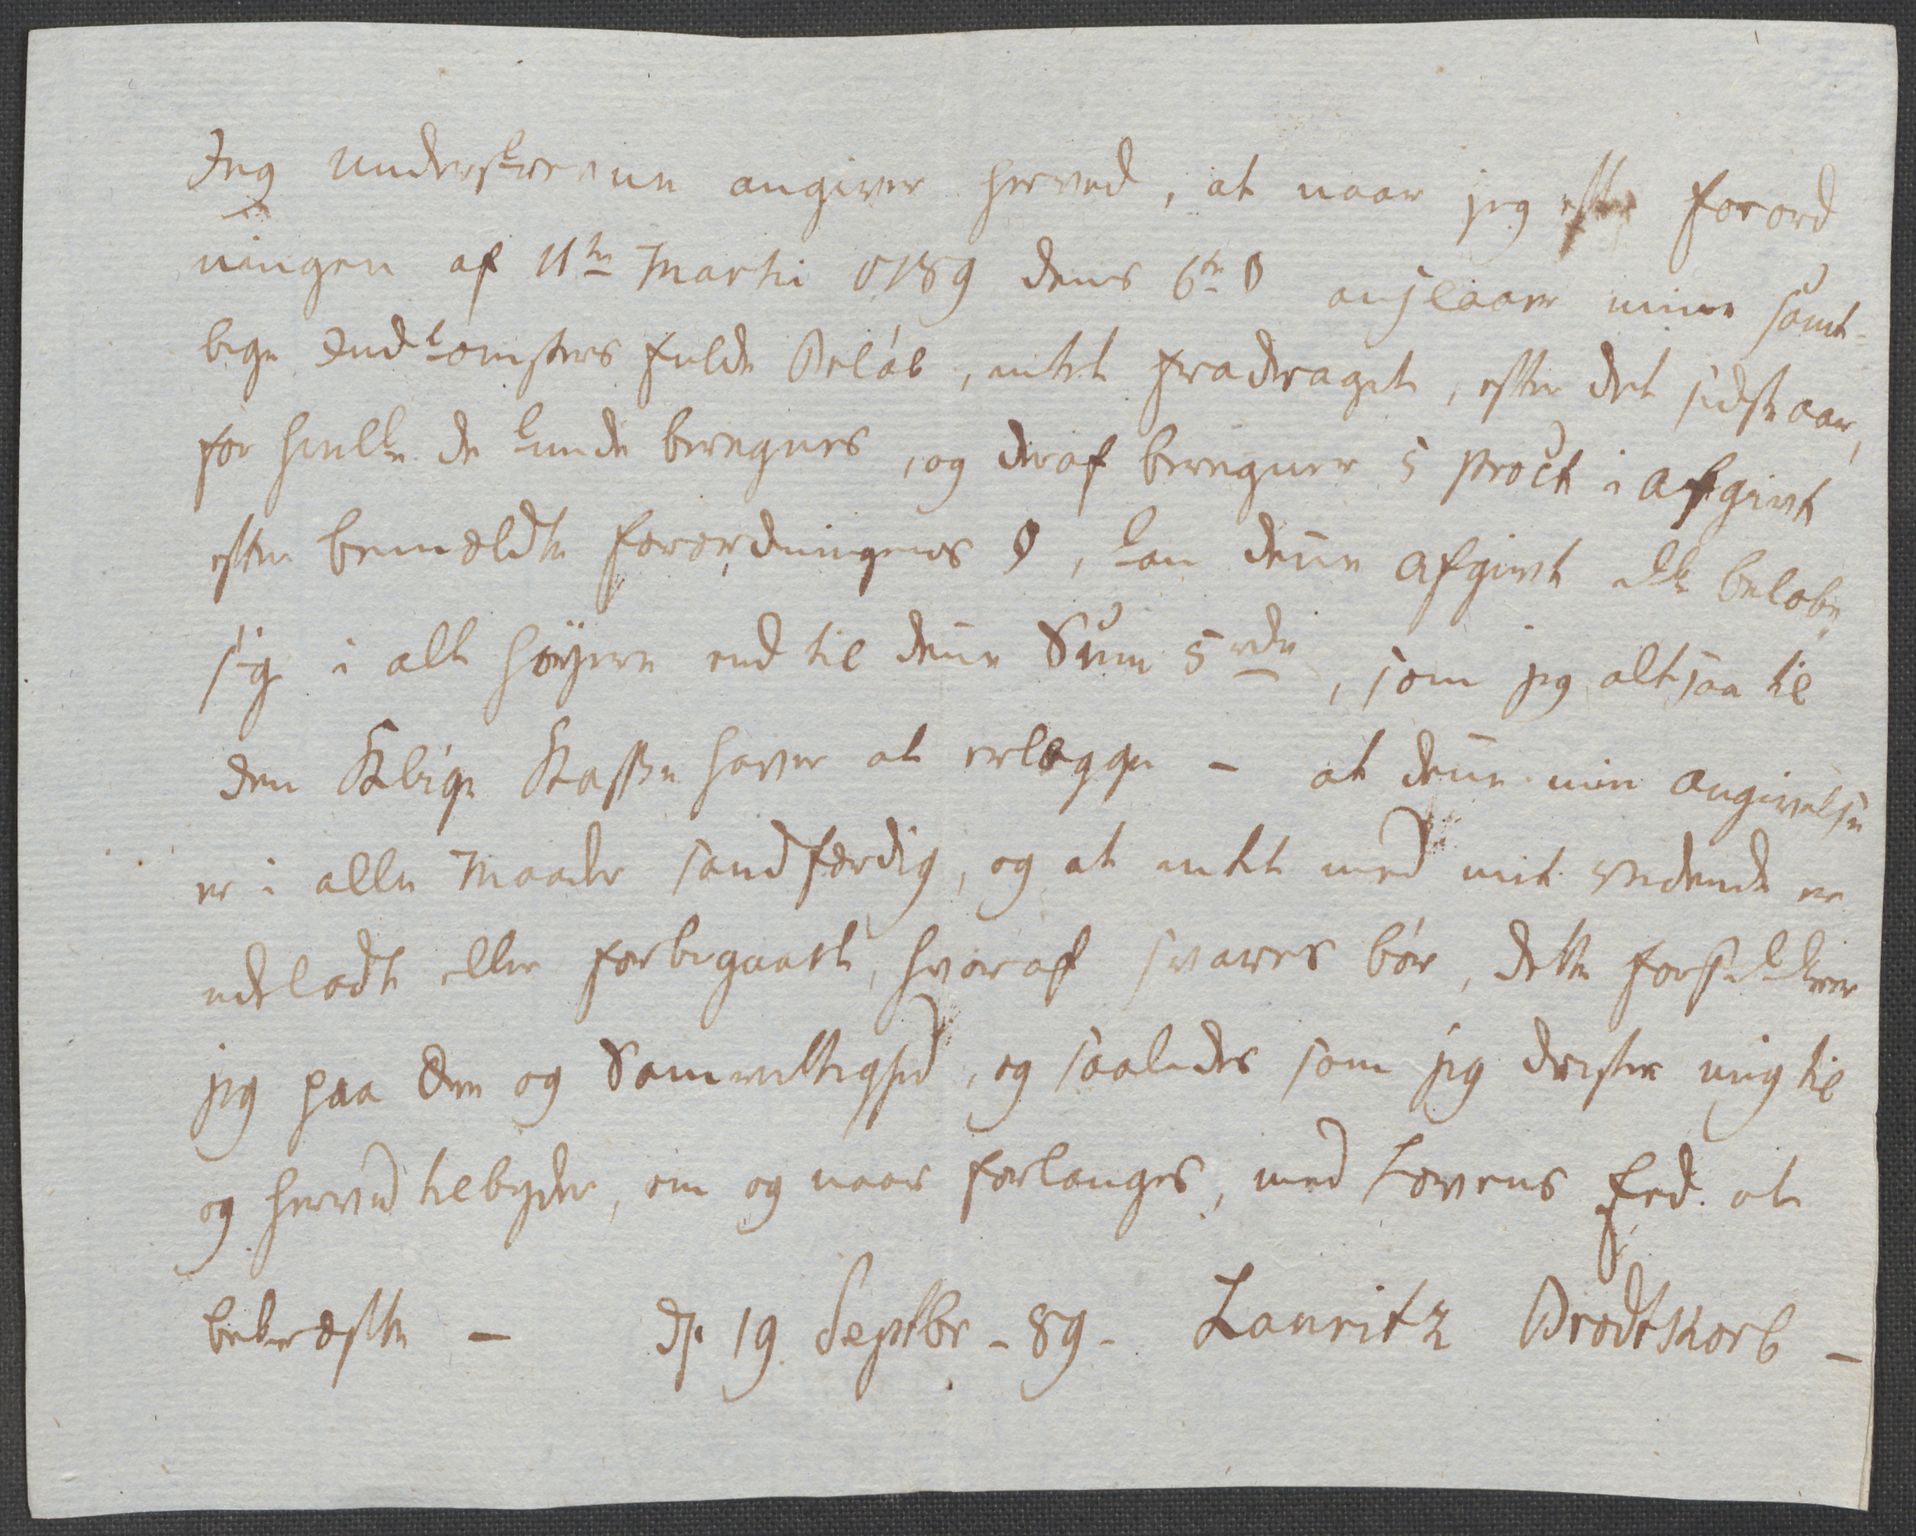 Jeg underskrevne angiver herved, at naar jeg efter Forord
ningen af 11te Martii 1789 dens 6te § anslaaer mine samt-
lige Indkomsters fulde Beløb, intet fradraget, efter det sidste aar,
for hvilke de kunde beregnes, og deraf beregner 5 proct i Afgivt
efter bemeldte Forordningens §, kan denne Afgivt ikke beløbe
sig i alt høyere end til denne Sum 5 rdr, som jeg altsaa til
den Kblige Kasse haver at erlægge - at denne min Angivelse
er i alle Maader sandfærdig, og at intet med mit vidende er
udeladt eller forbigaaet, hvoraf svares bør, dette forsikkrer
jeg paa Ære og Samvittighed, og saaledes som jeg drister mig til
og herved tilbyder, om og naar forlanges, med Lovens Eed at
bekræfte - d. 19 Septbr - 89 - Lauritz Brodtkorb -